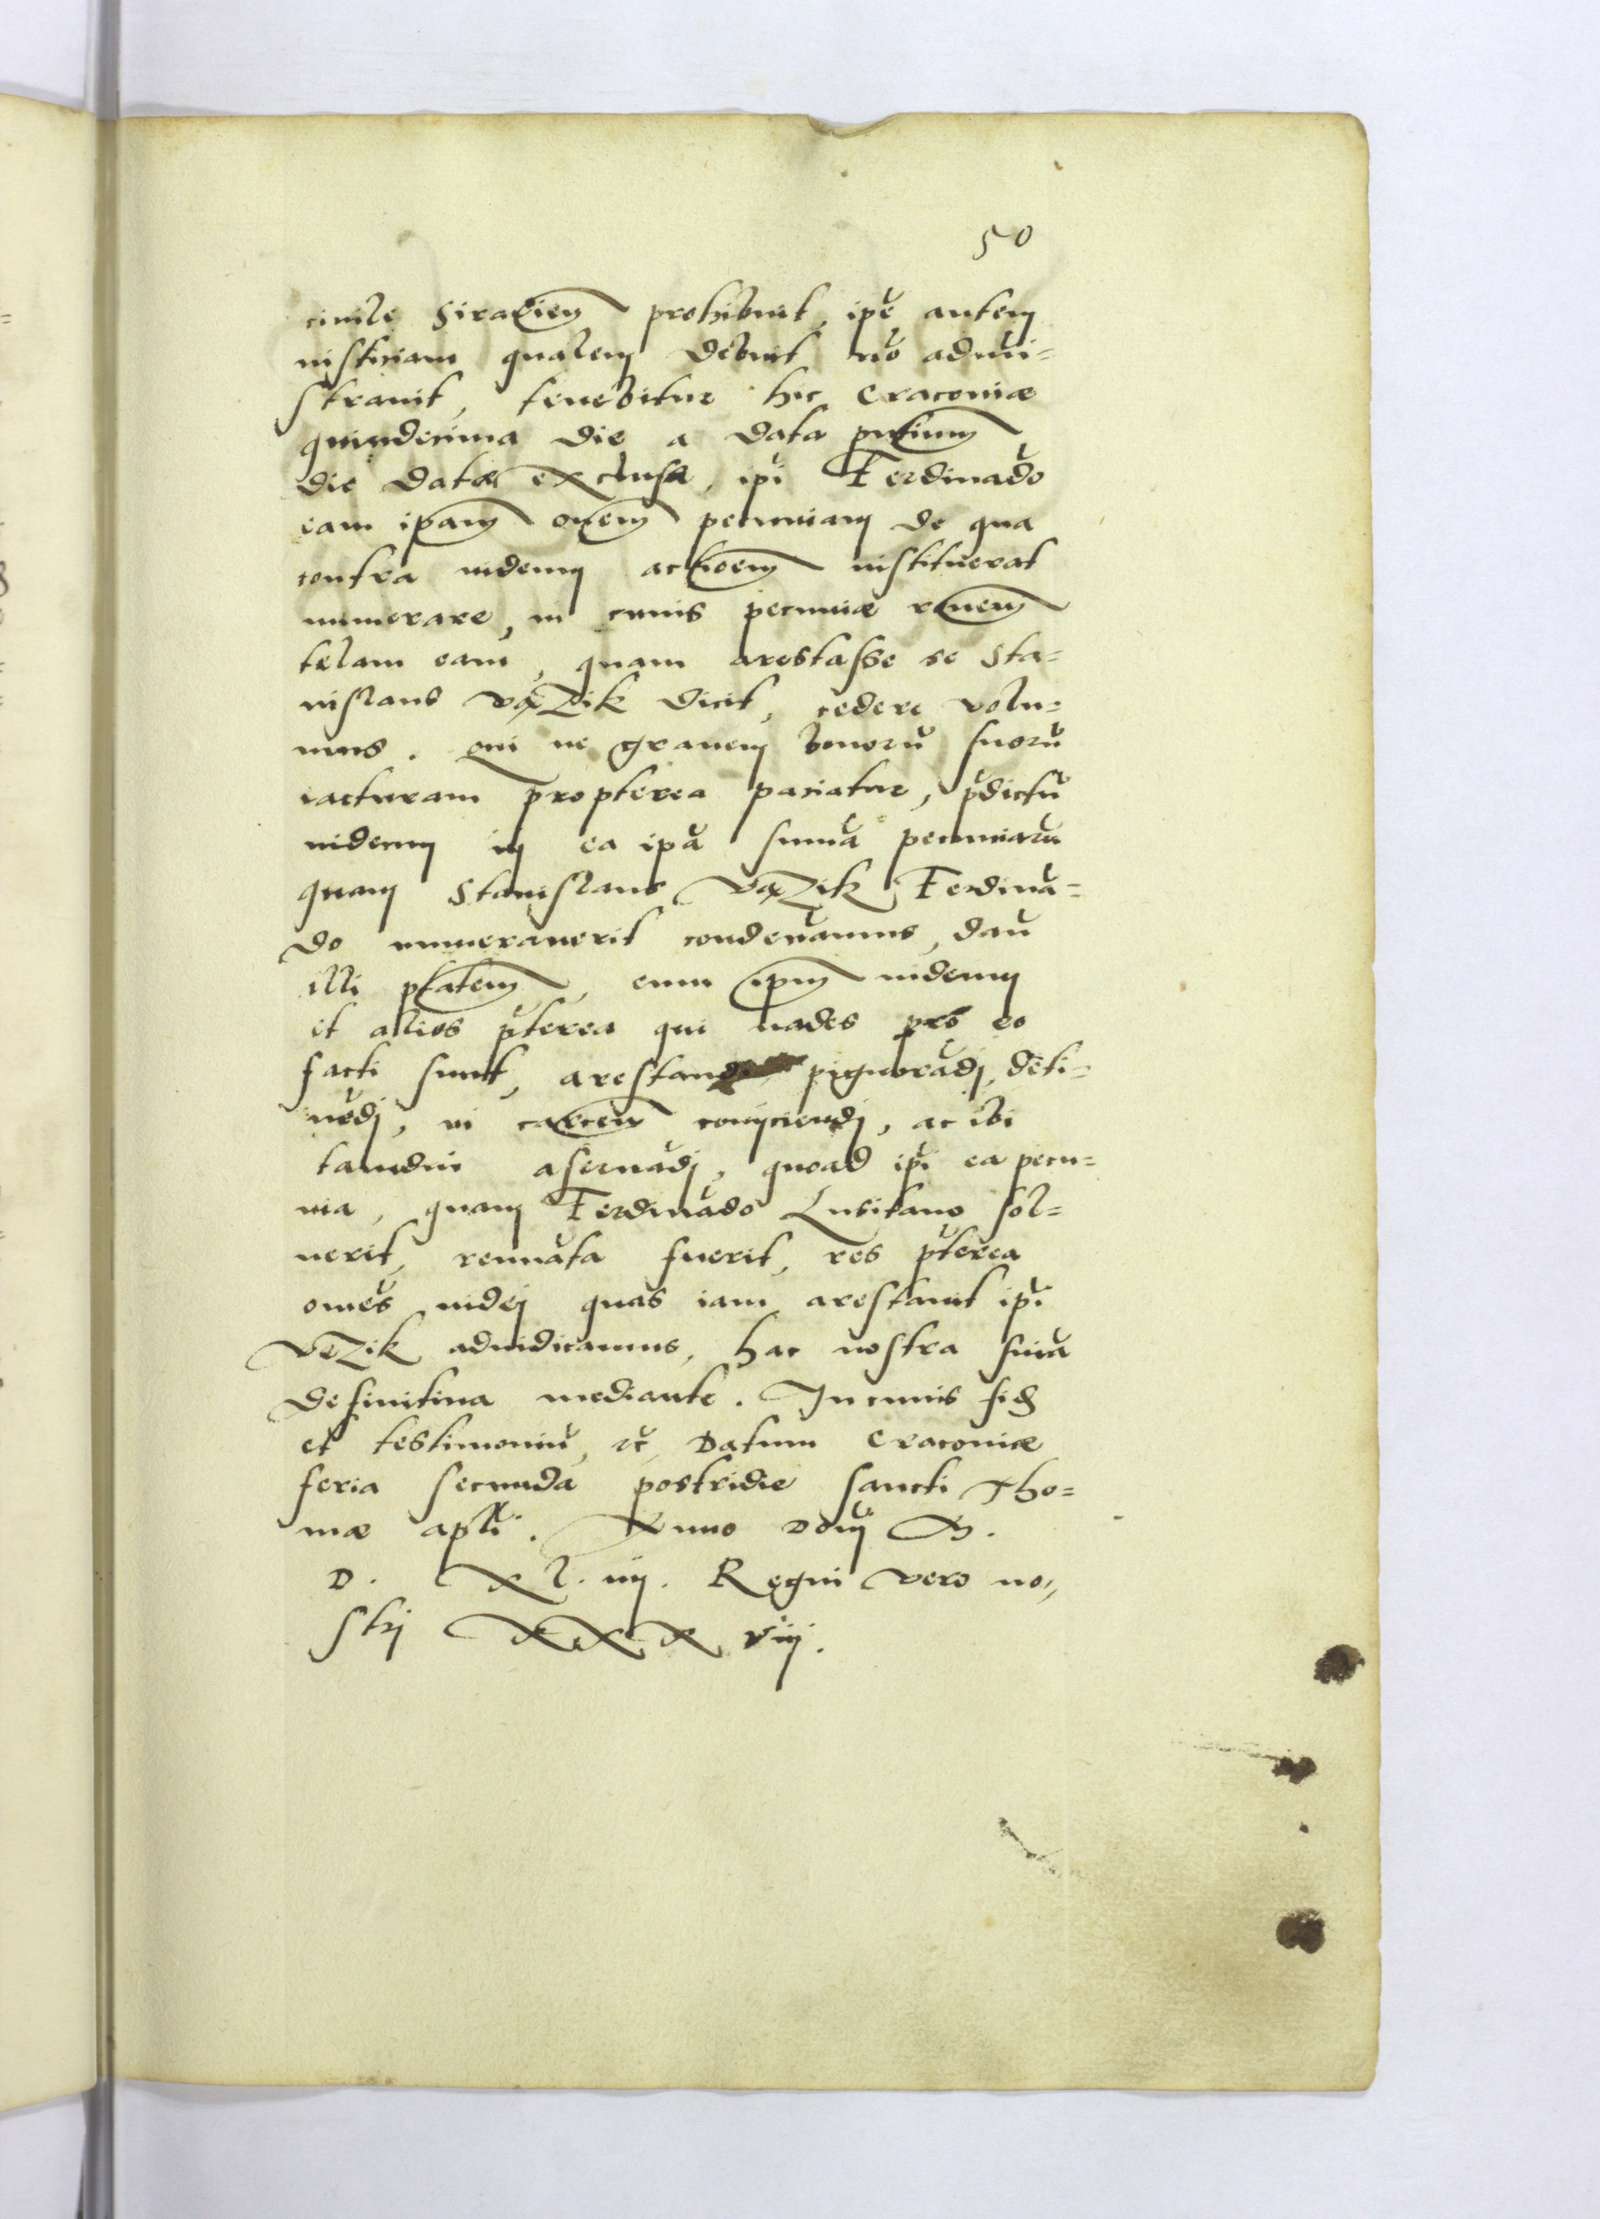 50
ciuile Siradien̄ prohibuit, ip̄e autem
iustitiam qualem debuit nō admi-
strauit, tenebitur hic Cracouiæ
quindecima die a data pn̄tium
die data exclusa, ip̄i Ferdinādo
eam ipam̄ om̄em pecuniam de qua
contra iudeum actioēm instituerat
numerare, in cuius pecuniæ rōnem
telam eam, quam arestasse se Sta-
nislaus Vązik dicit, cedere volu-
mus. Qui ne grauem bonorū suorū
iacturam propterea paciatur, p̄dictū
iudeum in ea ipā sūma pecuniarū
quam Stanislaus Vązik Ferdinā-
do numerauerit condēnamus, dam̄
illi p̄tatem, eum ipm̄ iudeum
et alios p̄terea qui vades pro eo
facti sunt, arestandi pignorādj, deti-
nēdj, in carcerem conijciendj, ac ibi
tamdiu aseruādj, quoad ip̄i ea pecu-
nia, quam Ferdinādo Lusitano sol-
uerit, renūata fuerit, res p̄terea
om̄es iudej quas iam arestauit ip̄i
Vązik adiudicamus, hac nostra sn̄ia
definitiua mediante. In cuius fid̄
et testimoniū, rc̄, Datum Cracouiæ
feria secunda postridie sancti Tho-
mæ apl̄i. Anno Dn̄j M.
D. XL. iiij. Regni vero no-
strj XXX viij.